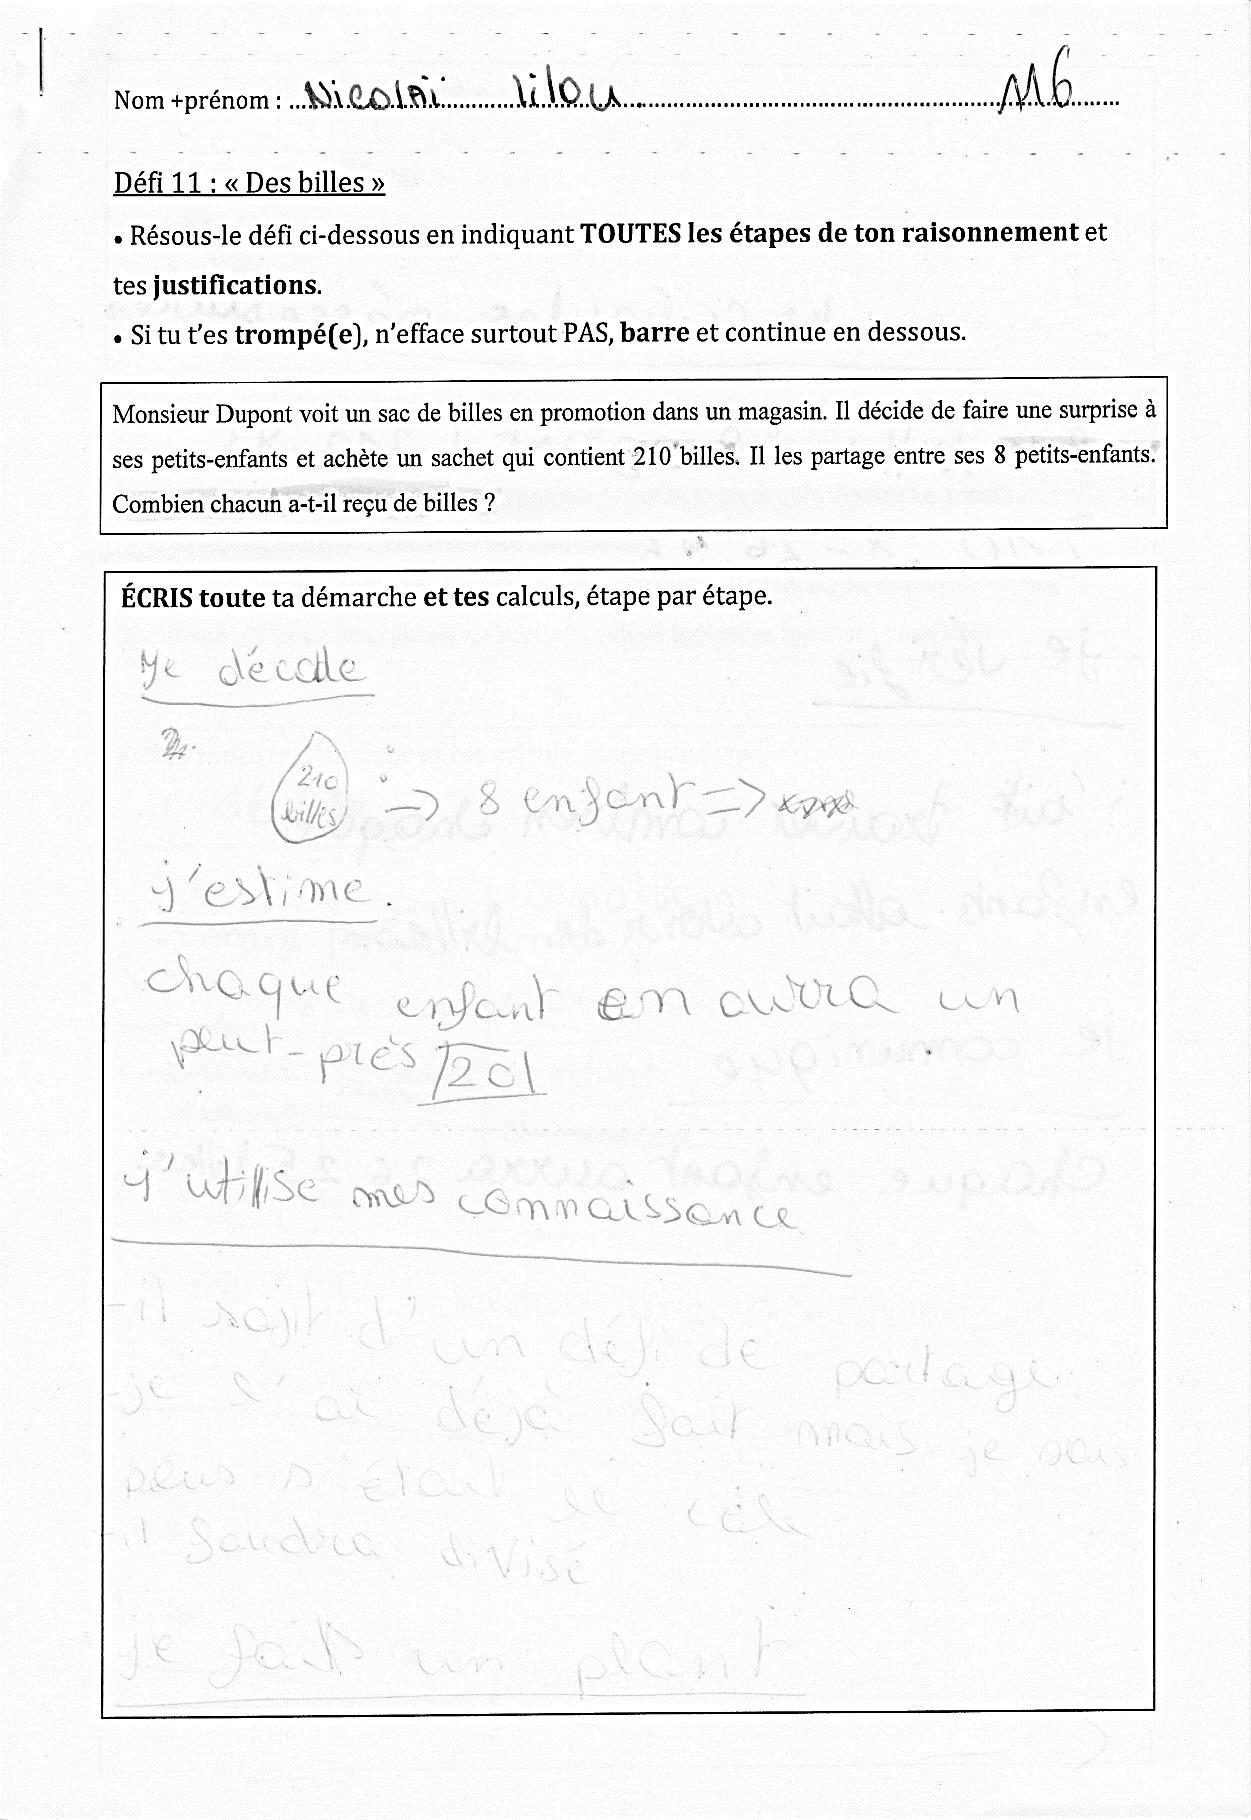 Nom +prénom : ...Nicolaï lilou M6
Défi 11 : « Des billes »
• Résous-le défi ci-dessous en indiquant TOUTES les étapes de ton raisonnement et
tes justifications.
• Si tu t'es trompé(e), n'efface surtout PAS, barre et continue en dessous.
Monsieur Dupont voit un sac de billes en promotion dans un magasin. Il décide de faire une surprise à
ses petits-enfants et achète un sachet qui contient 210 billes. Il les partage entre ses 8 petits-enfants.
Combien chacun a-t-il reçu de billes ?
ÉCRIS toute ta démarche et tes calculs, étape par étape.
Je décode
210
billes
=> 8 enfant =>
j'estime.
chaque enfant en aurra un
peut-près 20
j'utilise mes connaissance
-il sajit d'un défi de partage.
-je l'ai déjà fait mais je sais
plus s'était le
-il faudra divisé
je fait un plant